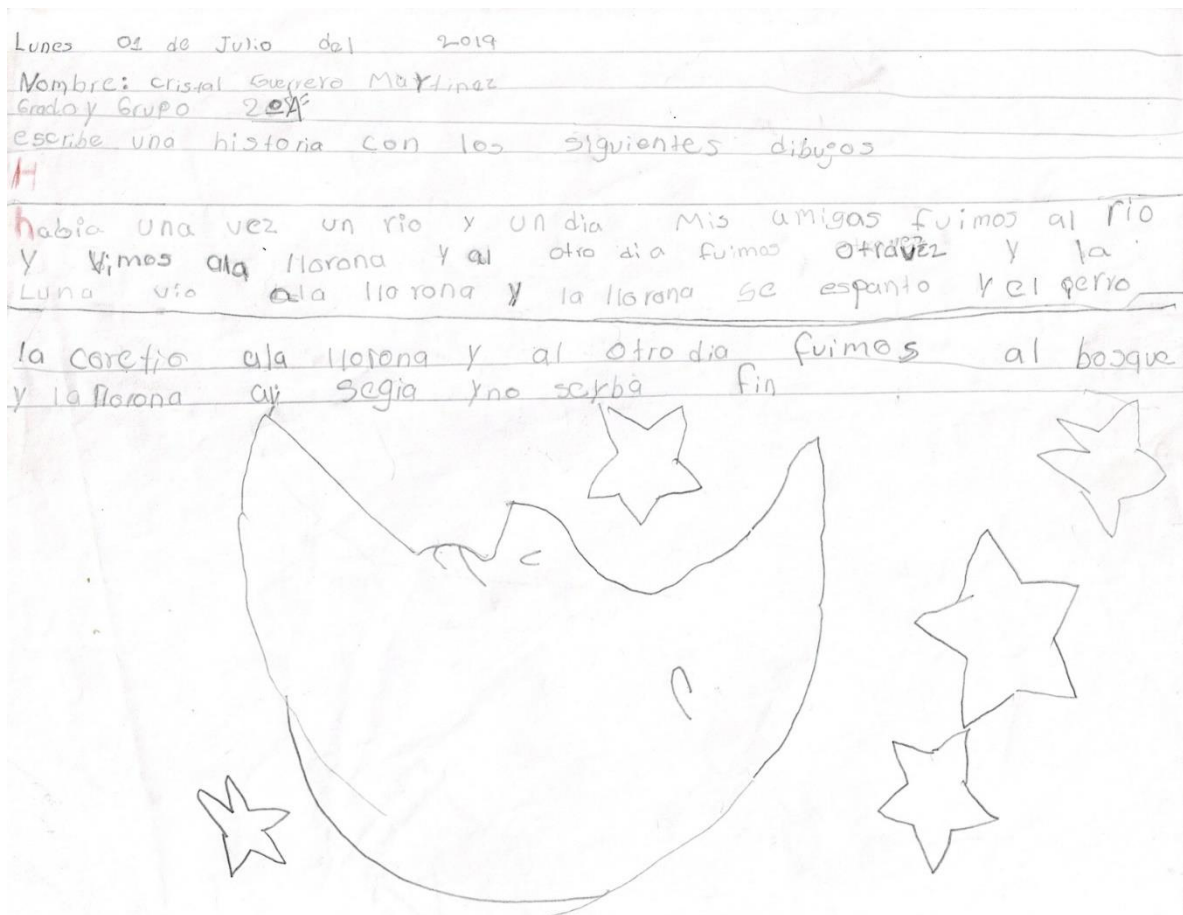 Lunes 01 de Julio del 2019
Nombre: cristal Guerrero Martinez
Grado y Grupo 2
escribe una historia con los siguientes dibujos
H
habia una vez un rio y un dia Mis amigas fuimos al rio
y vimos ala llorona y al otro dia fuimos otravez y la
Luna vio ala llorona y la llorona se espanto y el perro
la coretio ala llorona y al otro dia fuimos al bosque
y la llorona ay segia yno seyba fin